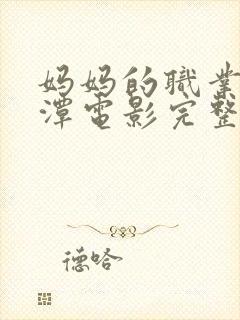 妈妈的職業
潭電影完整
德哈